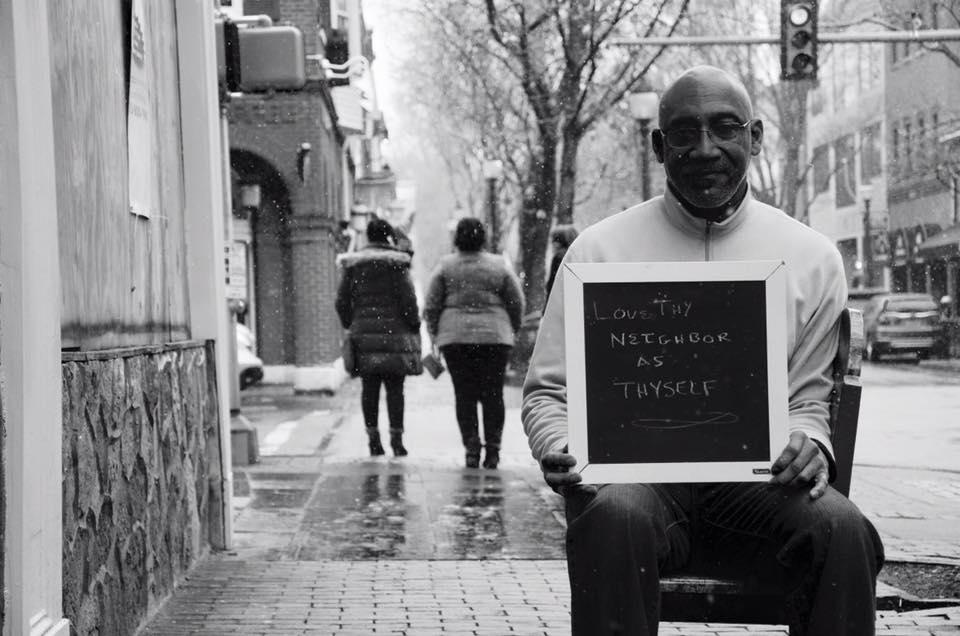 LOVE THY
NEIGHBOR
AS
THYSELF